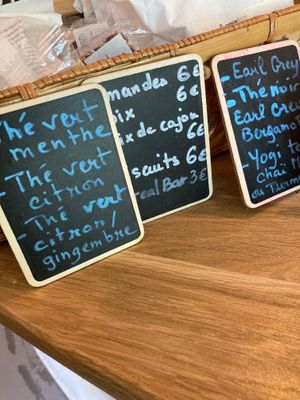 Thé vert
menthe
- Thé vert
citron
- Thé vert
citron/
gingembre
mandes 6€
oix 6€
ix de cajou
6€
scuits 6€
eal Bar 3€
- Earl Grey
- Thé noir
Earl Grey
Bergamot
- Yogi t
Chai
ou Turm